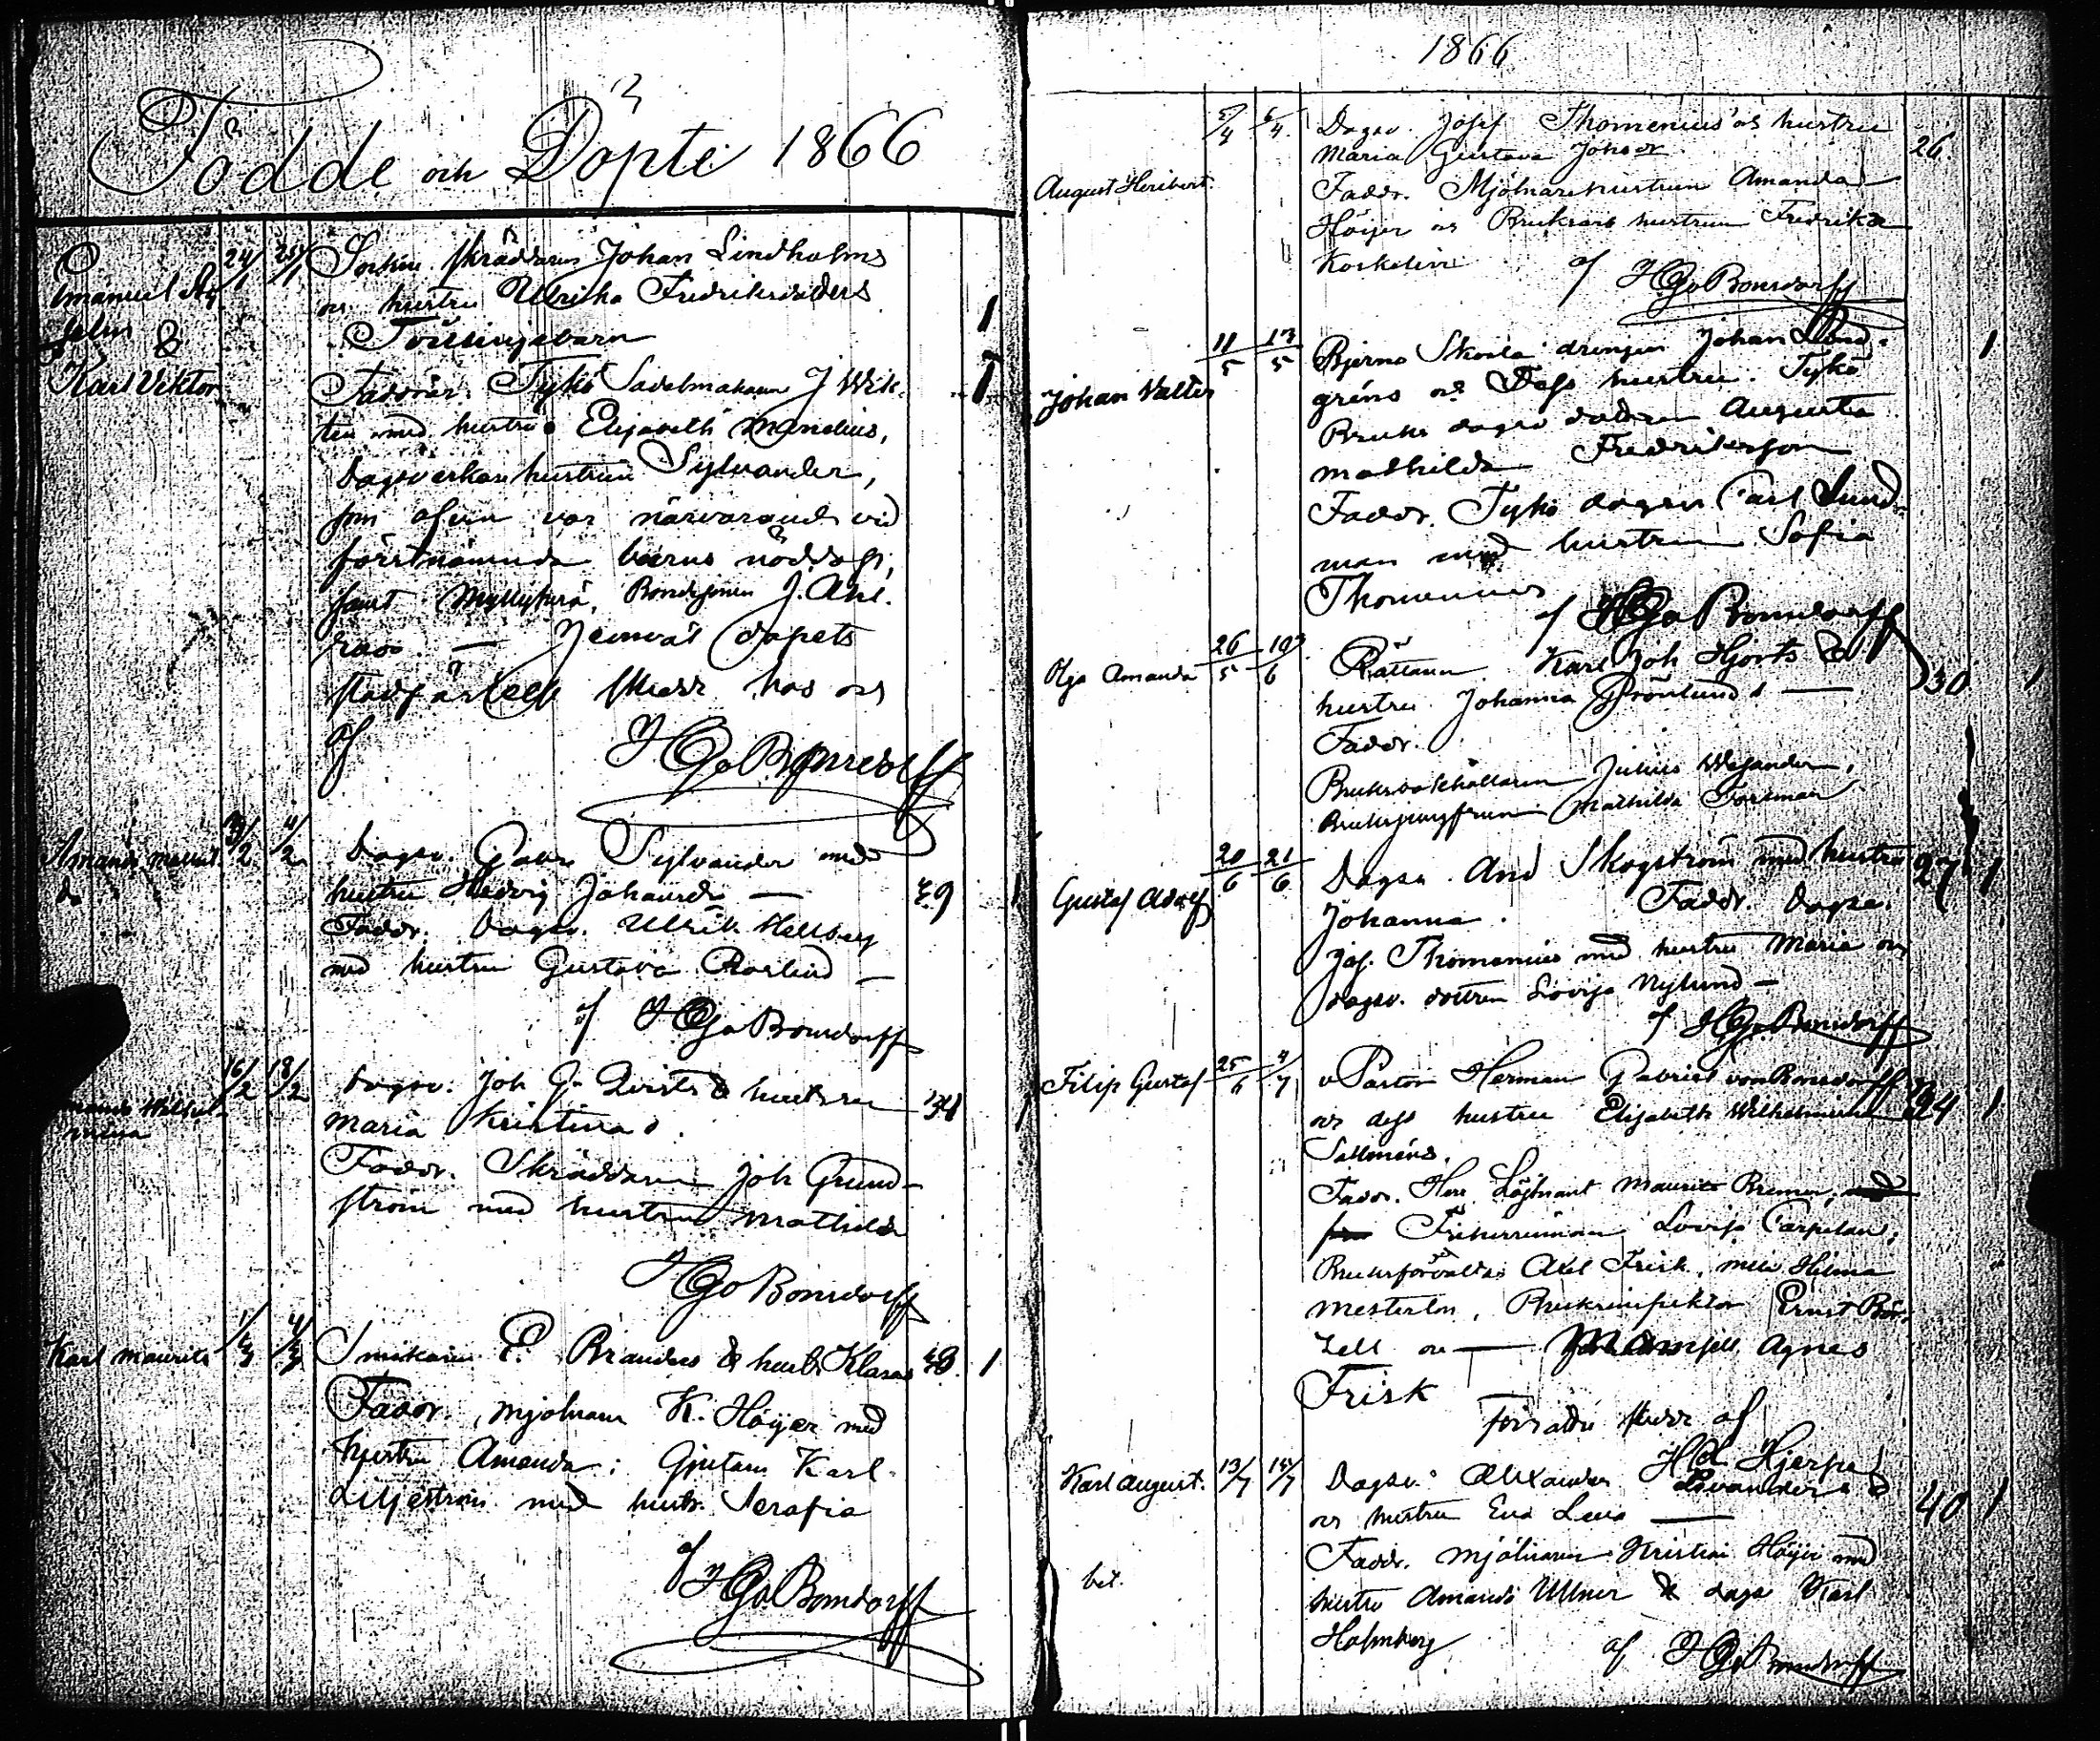 Födde och Döpte 1866
Emanuel
&
Karl Viktor
24/1 25/1
Socken skräddaren Johan Lindholms
och hustru Ulrika Fredriksdotters
Tvillingebarn
1
Faddrar: Tykö Sadelmakaren J Wik-
1
ten med hustru Elisabeth Mandelius,
Dagsverkarehustrun Sylvander,
som äfven var närvarande vid
förstnämnda barns nöddop;
samt Bondesonen J.
dopets
skedde hos oss
af HGvBonsdorff
Amanda
da
4/2
Dagsv. Sylvander med
hustru Hedvig Johansdr —
29
1
Faddr. Dagsv. Ulrik Hellberg
med hustru Gustava —
af HGvBonsdorff
Wilhel-
mina
16/2 18/2
Dagsv. Joh G. Qvists & hustru
34
1
Maria Kristina
Faddr. Skräddaren Joh Grund-
ström med hustru Mathilda
HGvBonsdorff
Karl Maurits
1/3 4/3
E. Branders & hustr Klaras
1
Faddr. Mjölnaren K. Höijer med
hustru Amanda; Gjutaren Karl
Liljeström med hustr. Serafia
af HGvBonsdorff
1866
August Heribert.
5/4 6/4
Dagsv. Josef Thomenius' och hustru
Maria Gustava Johsdr
26.
Faddr. Mjölnarehustrun Amanda
Höijer och Bruksarb hustrun Fredrika
Koskelin
af HGvBonsdorff
Johan Valter
11/5 13/5
Bjerno Skoila drängen Johan Lind-
1
gréns och Dess hustru. Tykö
Bruks dagsv dottren Augusta
Mathilda Fredriksson
Faddr. Tykö dagsv Carl Sund-
man med hustrun Sofia
Thomenius
af HGvBonsdorff
Olga Amanda
26/5 10/6
Rättaren Karl Joh Hjorts &
hustru Johanna Grönlund —
30
1
Faddr.
Bruksbokhållaren Julius Wejander,
Bruksjungfrun Mathilda Forsman
Gustaf Adolf
20/6 21/6
Dagsv. And Skogström med hustru
27
1
Johanna. Faddr. Dagsv.
Jos. Thomenius med hustru Maria och
dagsv. dottren Lovisa Nylund —
af HGvBonsdorff
Filip Gustaf
25/6 4/7
vPastor Herman Gabriel von Bonsdorff
och dess hustru Elisabeth Wilhelmina
24
1
Sallméns.
Faddr. Herr Löjtnant Maurits Bremer, med
fru Friherrinnan Lovisa Carpelan;
Bruksförvaltar Axel Frisk, Hilma
Mesterton, Bruksinspektor Ernst Bör-
zell och — Mamsell Agnes
Frisk
förrättn skedd af
H A Hjerpe
Karl August.
13/7 15/7
Dagsv. Alexander Levanders
och hustru Eva Lena —
40
1
Faddr. Mjölnaren Kristian Höijer med
hustru Amanda Ullner & dagsv Karl
bet.
Holmberg
af HGvBonsdorff